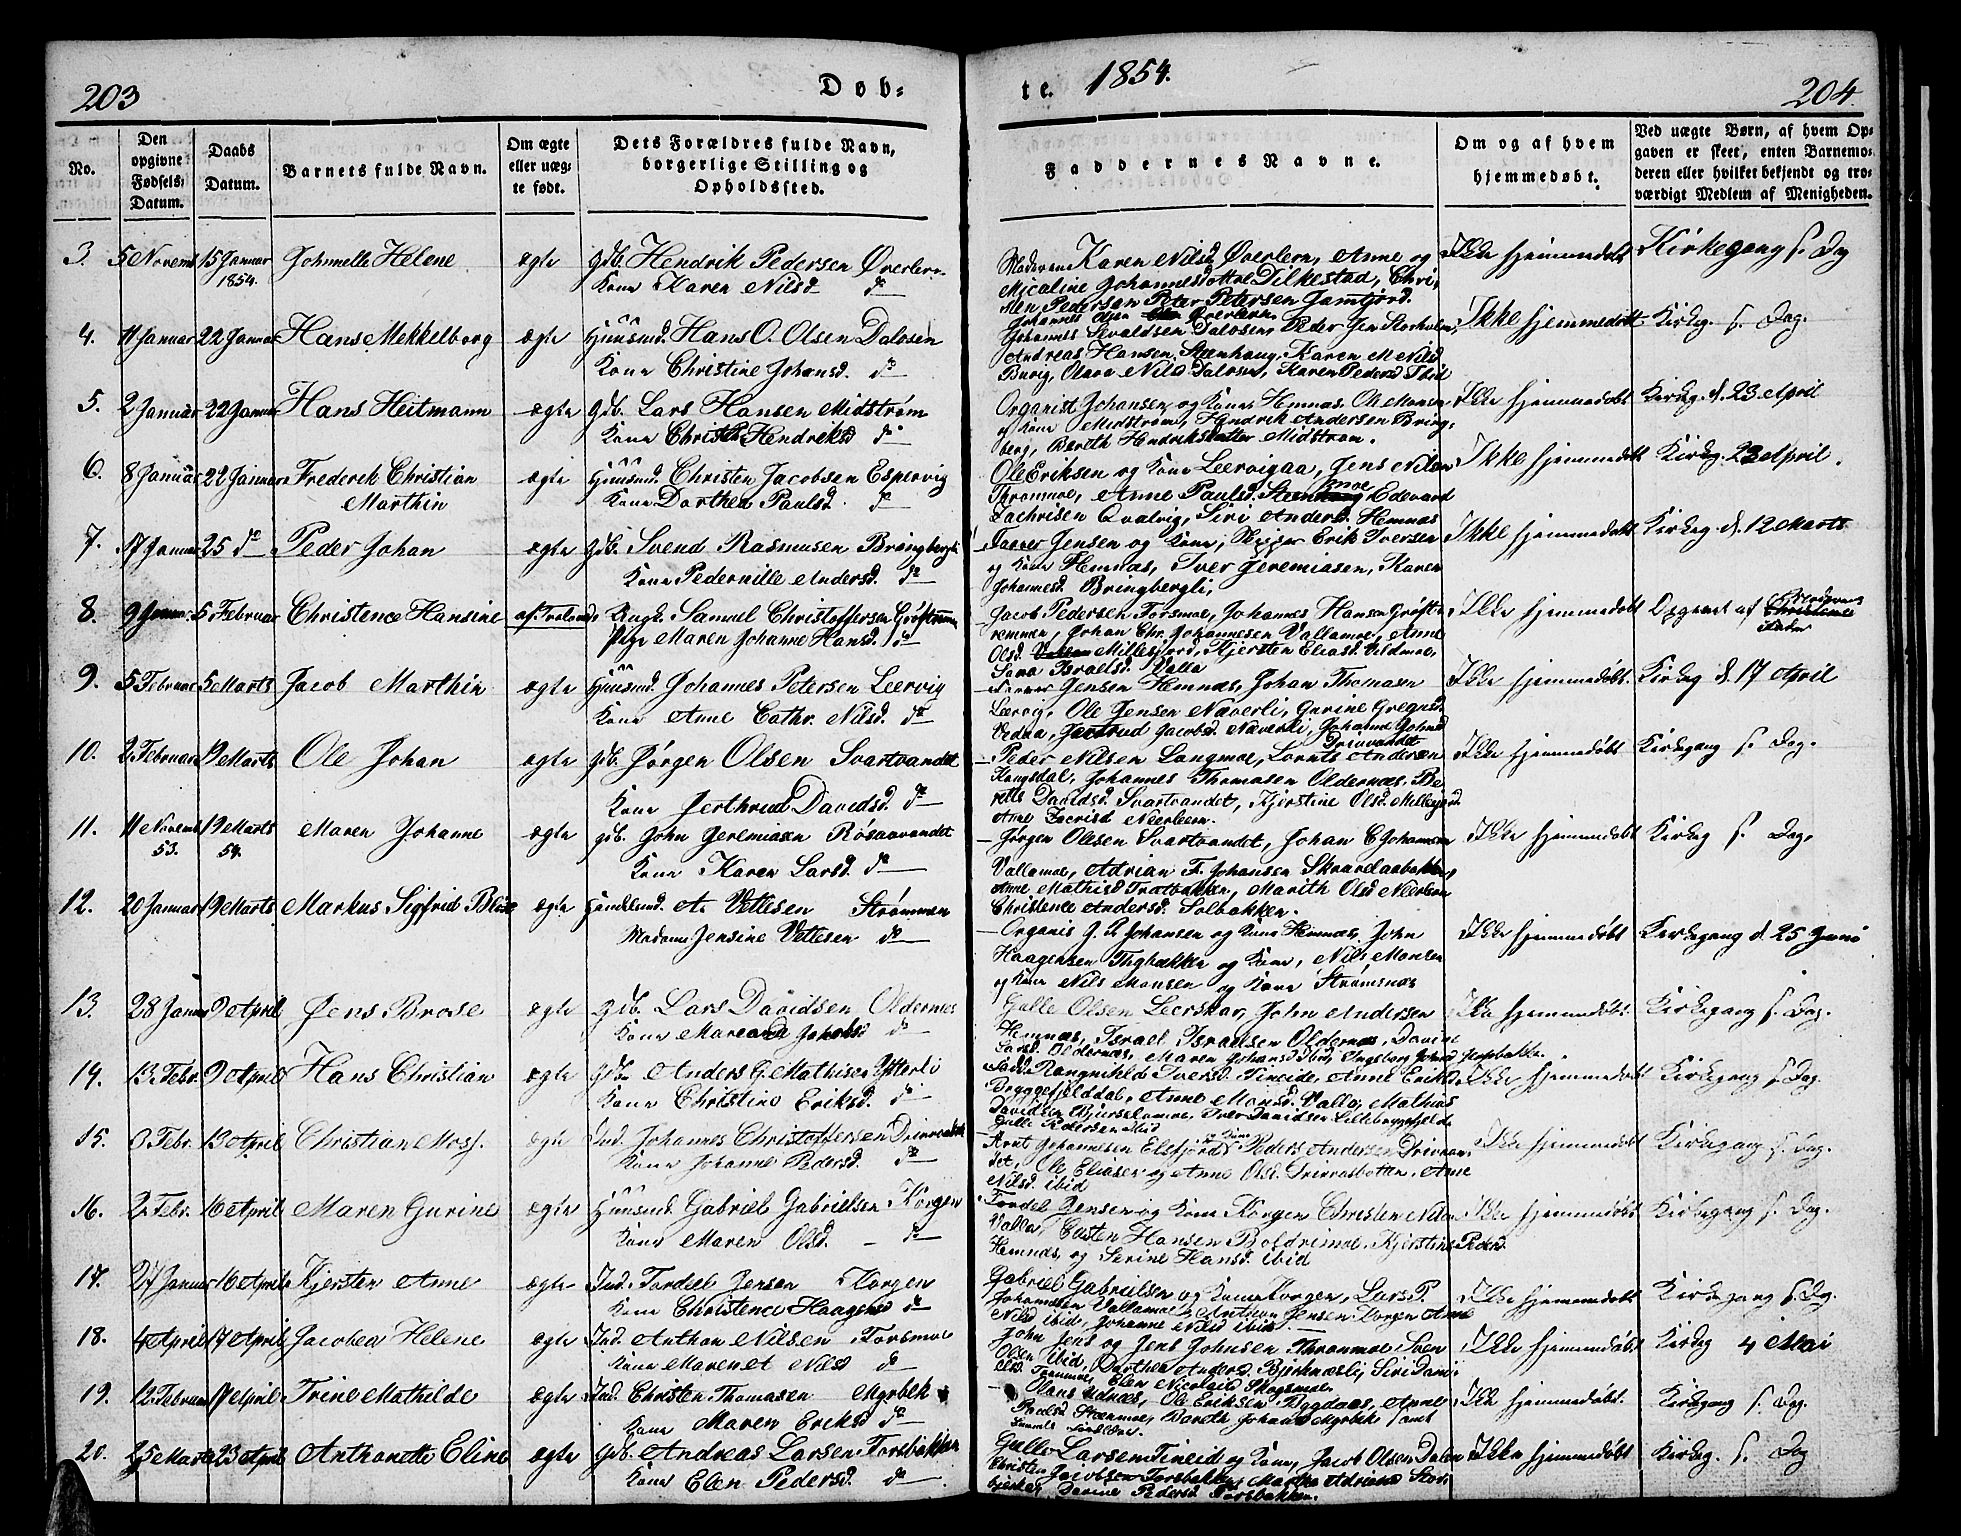 203
Døb-
te. 1854.
204.
No.
Den opgivne Fødsels Datum.
Daabs Datum.
Barnets fulde Navn.
Om ægte eller uægte født.
Dets Forældres fulde Navn, borgerlige Stilling og Opholdsfted.
Faddernes Navne.
Om og af hvem hjemmedøbt.
Ved uægte Børn, af hvem Opgaven er skeet, enten Barnemoderen eller hvilket bekjendt og troværdigt Medlem af Menigheden.
3. 5 Novemb 15 Januar 1854. Johnelle Helene ægte Gdb. Hendrik Pedersen Øverleer
Kone Karen Nilsd do
Karen Nilsd Øverleern, Anne og
Micaline Johannesdottre Dilkestad, Chri-
sten Pedersen Peter Petersen Jamtjord.
Ikke hjemmedøbt Kirkegang s. Dag
4. 11 Januar 22 Januar Hans Mekkelborg ægte Huusmd. Hans O. Olsen Dalosen
Kone Christine Johansd. do
Johannes Sivaldsen Dalosen, Peder Jen Storholm,
Andreas Hansen Steenhaug, Karen M Nilsd
Burig, Olava Nilsd Dalosen, Karen Pedersd Ibid
Ikke hjemmedøbt Kirkeg. s. Dag.
5. 2 Januar 22 Januar Hans Heitmann ægte Gdb. Lars Hansen Midstrøm
Kone Hendriksd do
Organist Johansen og Kone Hemnæs, Ole Monsen
og Kone Midstrøm, Hendrik Andersen Bring-
berg, Bereth Hendriksdatter Midstrøm.
Ikke hjemmedøbt Kirkeg. d. 23 April
6. 8 Januar 22 Januar Frederik Christian Marthin ægte Huusmd. Christen Jacobsen Espervig
Kone Dorthea Paulsd. do
Ole Eriksen og Kone Leervigaa, Jens Nilsen
Thrommoe, Anne Paulsd. Edevard
Zachrisen Qvalvig, Siri Andersd. Hemnæs
Ikke hjemmedøbt Kirkeg. 23 April.
7. 17 Januar 25 do Peder Johan ægte Gdb. Svend Rasmusen Bringbergli
Kone Pedernille Andersd. do
Jensen og Kone, Erik Iversen
og Kone Hemnæs, Iver Jeremiasen, Karen
Johannesd. Bringbergli,
Ikke hjemmedøbt Kirkeg d. 12 Marts
8. 9 Januar 5 Februar Christence Hansine Ungk. Samuel Christoffersen Grøftremmen
Pige Maren Johanne Hansd. do
Jacob Pedersen Forsmoe, Johannes Hansen Grøft-
remmen, Johan Chr. Johannesen Vallamoe, Anne
Olsd. Millesjord, Kjersten Eliasd. Veldmoe,
Sara Israelsd. Valla
Ikke hjemmedøbt Opgivet af
9. 5 Februar 5 Marts Jacob Marthin ægte Huusmd. Johannes Petersen Leervig
Kone Anne Cathr. Nilsd. do
Jensen Hemnæs, Johan Thomasen
Leervig, Ole Jensen Næverli, Gurine Gregusd.
Vedaa, Jertrud Jacobsd. Næverli, Johanne Johnsd
Ikke hjemmedøbt. Kirkeg d. 17 April
10. 2 Februar 19 Marts Ole Johan ægte Gdb. Jørgen Olsen Svartvandet
Kone Jerthrud Davidsd. do
Peder Nilsen Langmoe, Lornts Andersen
Kangsdal, Johannes Thomasen Oldernæs, Be-
rette Davidsd. Svartvandet, Kjerstine Olsd. Millesjord
Anne Zacrisd Neerleern.
Ikke hjemmedøbt Kirkegang s. Dag.
11. 11 Novemb 53. 19 Marts 54. Maren Johanne ægte Gdb. John Jeremiasen Røsaavandet
Kone Karen Larsd. do
Jørgen Olsen Svartvandet, Johan C Johansen
Vallamoe, Adrian F. Johansen Skaardaabakken,
Anne Mathisd Tratbakken, Marith Olsd Neerleern
Christence Andersd. Solbakken.
Ikke hjemmedøbt Kirkeg s. Dag.
12. 20 Januar 19 Marts Markus Sigfrid ægte Handelsmd. A. Vettesen Strømmen
Madame Jensine Vettesen do
Organis G. P. Johansen og Kone Hemnæs, John
Haagensen Thybækken og Kone, Nils Monsen
og Kone Nils Monsen og Kone Strømsnæs
Ikke hjemmedøbt Kirkegang d. 25 Juni
13. 28 Januar 9 April Jens Brose ægte Gdb. Lars Davidsen Oldernæs
Kone Jakobsd do
Gulle Olsen Leerskar, John Andersen
Hemnæs, Israel Israelsen Oldernæs, Davine
Larsd. Oldernæs, Maren Johansd Ibid, Ingeborg Johnsd
Ikke hjemmedøbt. Kirkegang s. Dag.
14. 13 Febr. 9 April Hans Christian ægte Gdb. Anders G. Mathisen Ytterli
Kone Christine Eriksd. do
Rangnihld Iversd. Fineide, Anne Eriksd
Bryggefjelddal, Anne Monsd. Valla, Mathias
Davidsen Bjerselamoe, Iver Davidsen Lillebryggefjeld
Gulle Pedersen Ibid
Ikke hjemmedøbt Kirkegang s. Dag.
15. Febr. 13 April Christian Mosf. ægte Ind. Johannes Christoffersen
Kone Johanne Pedersd. do
Arnt Johannesen Elsfjord, Peder Andersen Drivvan-
det, Ole Eliasen og Anne Olsd. Anne
Nilsd. ibid
Ikke hjemmedøbt Kirkegang s. Dag.
16. 2 Febr. 16 April Maren Gurine ægte Huusmd. Gabriel Gabrielsen Korgen
Kone Maren Olsd. do
Tordel Jensen og Kone Korgen Christen Nilsen
Valla, Hansen Boldremoe, Kjerstine Pedersd.
Hemnæs, og Serine Hansd. ibid
Ikke hjemmedøbt Kirkegang s. Dag.
17. 27 Januar 16 April Kjersten Anne ægte Ind. Tordel Jensen Korgen
Kone Christence Haagensd do
Gabriel Gabrielsen og Kone Korgen, Lars P.
Johannesen Vallamoe, Jensen Korgen Anne
Nilsd ibid, Johanne Nilsd ibid
Ikke hjemmedøbt Kirkegang s. Dag.
18. 4 April 17 April Jacobea Helene ægte Ind. Anthon Nilsen Forsmoe
Kone Marenet Nilsd do
John Jens og Jens Johnsen Thrommoe, Sven
Olsen ibid, Dorthea Andersd. Bjerknæsli, Siri
Forsmoe, Elen Nicolaisd Skogsmoe
Ikke hjemmedøbt Kirkeg 4 Mai
19. 12 Februar 17 April Trine Mathilde ægte Ind. Christen Thomasen Myrbæk
Kone Maren Eriksd. do
Ole Eriksen Bygdaas, Anne
Paulsd. Bereth Johansd Myrbæk samt
Ikke hjemmedøbt. Kirkegang s. Dag.
20. 25 Marts 23 April Anthonette Eline ægte Gdb. Andreas Larsen Forsbakken
Kone Elen Pedersd. do
Gulle Larsen Fineid og Kone, Jacob Olsen Dalen
Christen Jacobsen Forsbakken, Adriansd Stor-
Davine Pedersd Forsbakken.
Ikke hjemmedøbt Kirkeg. s. Dag